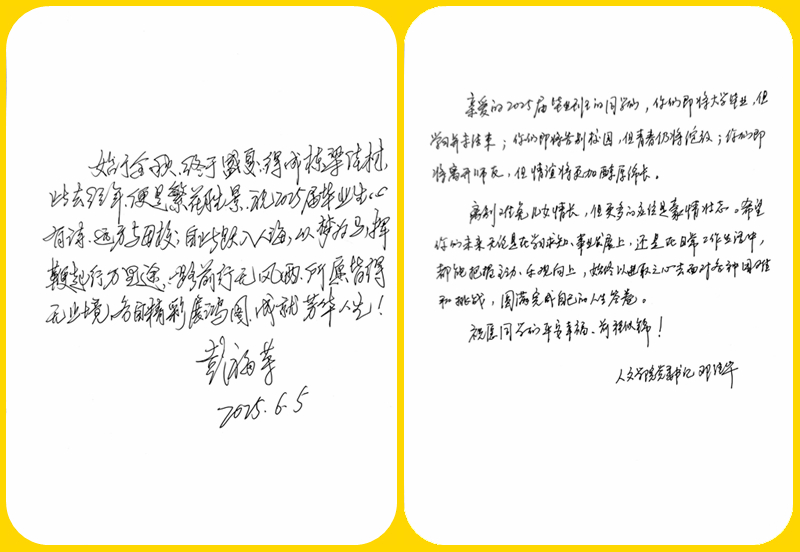 始于金秋,终于盛夏,得成栋梁佳材,
此去经年,便是繁花胜景,祝2025届毕业生心
有诗、远方与母校;自此跃入人海,以梦为马,挥
鞭起行万里途,一路前行无风雨,所愿皆得
无止境,各自精彩展鸿图,成就芳华人生!
彭福荣
2025.6.5
亲爱的2025届毕业班的同学们,你们即将大学毕业,但
学习并未结束;你们即将告别校园,但青春仍将绽放;你们即
将离开师友,但情谊将更加醇厚绵长。
离别难免儿女情长,但更多的应该是豪情壮志。希望
你们未来无论是在学习求知、事业发展上,还是在日常工作生活中,
都能把握主动、乐观向上,始终以进取之心去面对各种困难
和挑战,圆满完成自己的人生答卷。
祝愿同学们平安幸福、前程似锦!
人文学院党委书记 邓